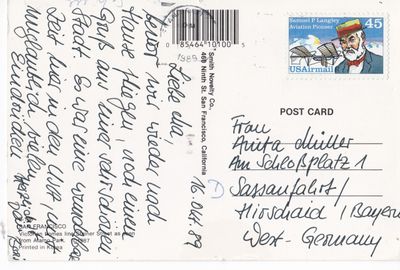 Liebe
16. Okt. 89
bevor wir wieder nach
Hause fliegen, noch einen
Gruß aus Ihrer
Stadt. Es war eine
Zeit hier in den USA,
unglaublich vielen
Eindrücken
SAN FRANCISCO
Printed in Korea
0 85464 10100 5
1989
Smith Novelty Co.
460 Ninth St. San Francisco, California
Samuel P. Langley
Aviation Pioneer
45
USAirmail
POST CARD
Frau
Anita Müller
Am Schloßplatz 1
Sassanfahrt/
Hirschaid/Bayern
West-Germany